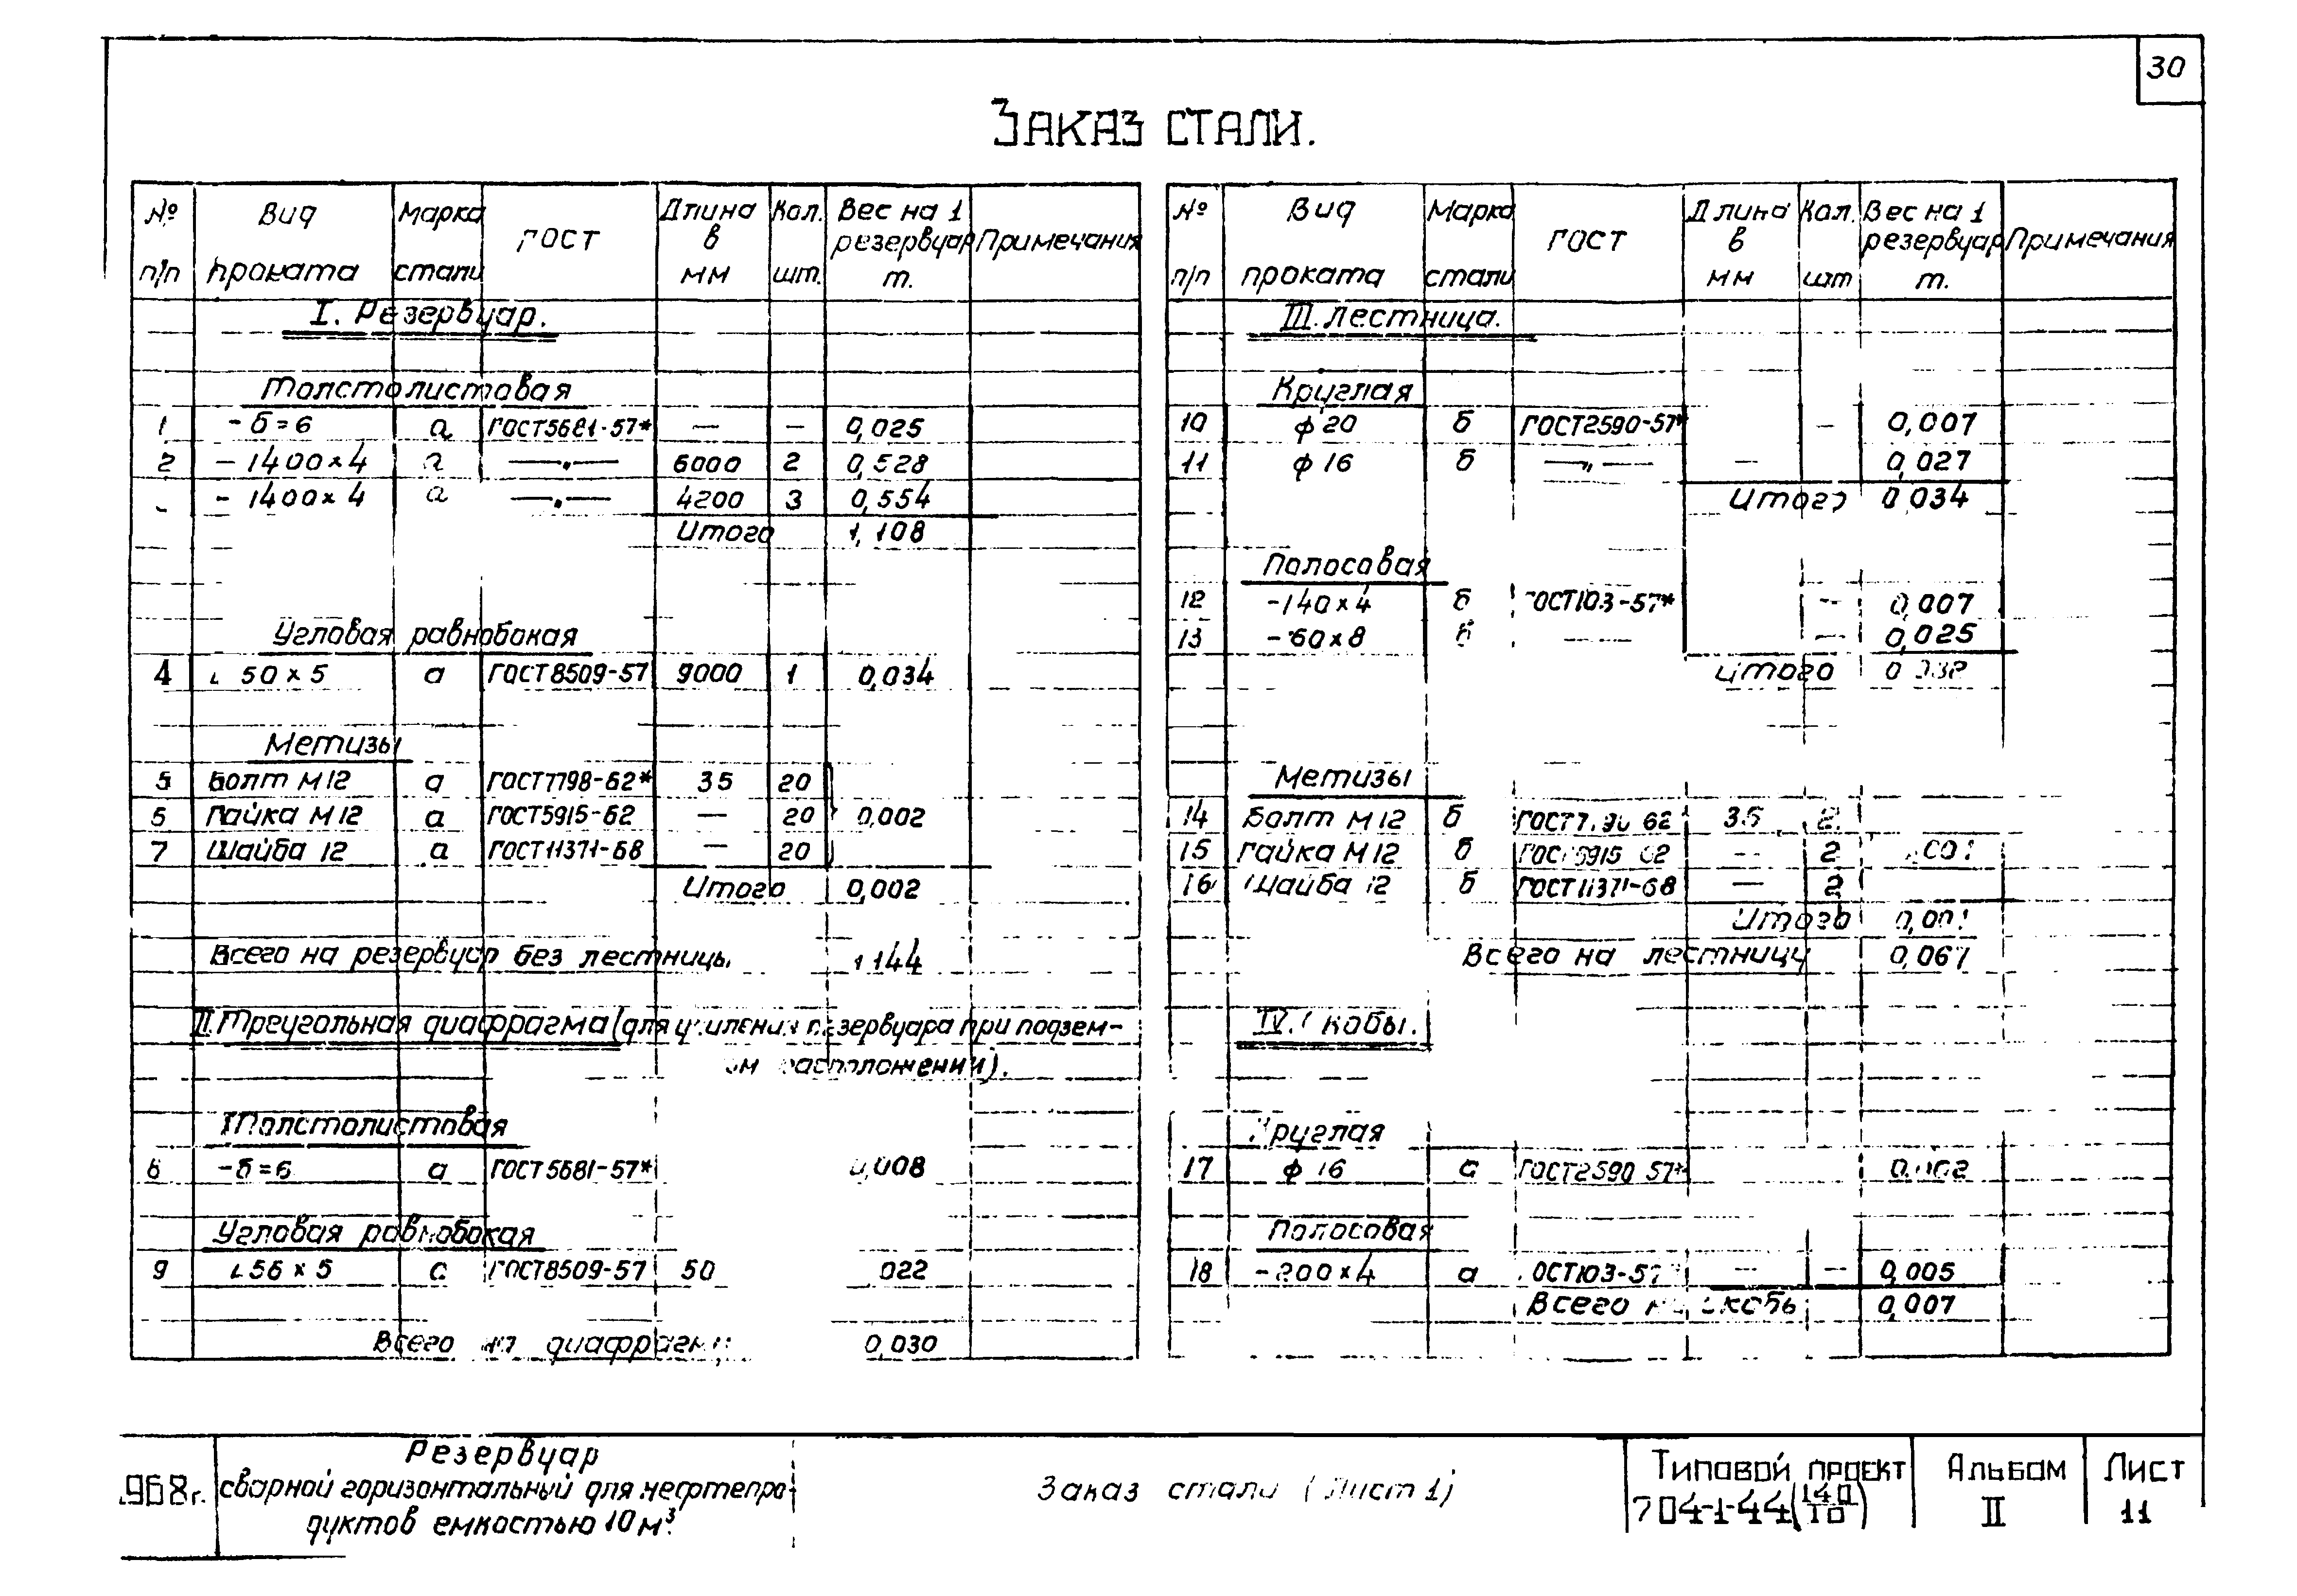 30
Заказ стали.
№ п/п Вид проката Марка стали ГОСТ Длина в мм Кол. шт. Вес на 1 резервуар т. Примечания
I. Резервуар.
Толстолистовая
1 - б=6 а ГОСТ5681-57* — — 0,025
2 - 1400×4 а —„— 6000 2 0,528
- 1400×4 а —„— 4200 3 0,554
Итого 1,108
Угловая равнобокая
4 ∟ 50×5 а ГОСТ8509-57 9000 1 0,034
Метизы
5 Болт М12 а ГОСТ7798-62* 35 20
6 Гайка М12 а ГОСТ5915-62 — 20 0,002
7 Шайба 12 а ГОСТ11371-68 — 20
Итого 0,002
Всего на резервуар без лестницы 1 144
II. Треугольная диафрагма (для усиления резервуара при подзем-
расположении).
Толстолистовая
8 - б=6 а ГОСТ5681-57* 0,008
Угловая равнобокая
9 ∟56×5 а ГОСТ8509-57 50 022
Всего на диафрагму 0,030
№ п/п Вид проката Марка стали ГОСТ Длина в мм Кол. шт Вес на 1 резервуар т. Примечания
III. Лестница.
Круглая
10 ф 20 б ГОСТ2590-57* — 0,007
11 ф 16 б —„— — 0,027
Итого 0,034
Полосовая
12 -140×4 б ГОСТ103-57* — 0,007
13 - 60×8 б — — 0,025
Итого 0 032
Метизы
14 Болт М12 б 35 2
15 Гайка М12 б ГОСТ5915-62 — 2
16 Шайба 12 б ГОСТ11371-68 — 2
Итого 0,001
Всего на лестницу 0,067
IV. Скобы.
Круглая
17 ф 16 а ГОСТ2590 57* 0,002
Полосовая
18 - 200×4 а ГОСТ103-57 — — 0,005
Всего на скобы 0,007
1968г.
Резервуар
сварной горизонтальный для нефтепро-
дуктов емкостью 10 м³.
Заказ стали (Лист 1)
Типовой проект
704-1-44(140/10)
Альбом
II
Лист
11